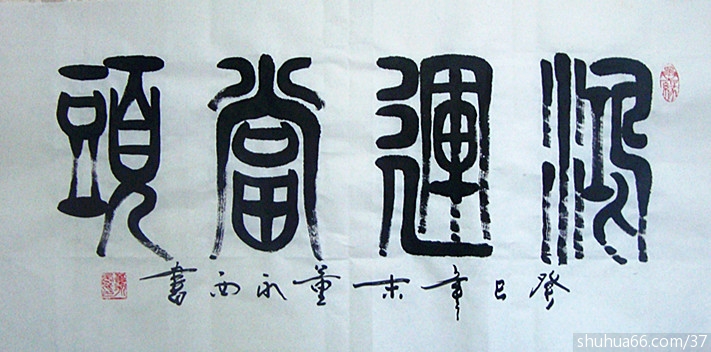 鴻運當頭
癸巳年末董永西書
shuhua66.com/37